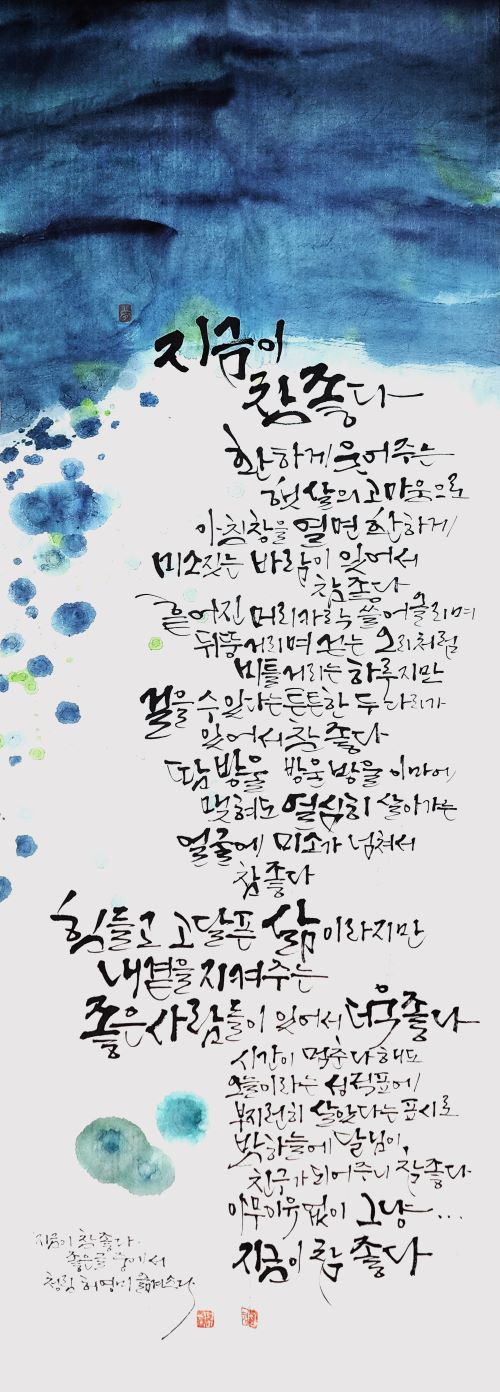 지금이
참 좋다
환하게 웃어주는
햇살의 고마움으로
아침창을 열면 환하게
미소짓는 바람이 있어서
참 좋다
흩어진 머리카락 쓸어올리며
뒤뚱거리며 걷는 오리처럼
비틀거리는 하루지만
걸을 수 있다는 튼튼한 두 다리가
있어서 참 좋다
땀방울 방울방울 이마에
맺혀도 열심히 살아가는
얼굴에 미소가 넘쳐서
참 좋다
힘들고 고달픈 삶이라지만
내 곁을 지켜주는
좋은 사람들이 있어서 더욱 좋다
시간이 멈춘다해도
오늘이라는 성적표에
부지런히 살았다는 표시로
밤하늘에 달님이,
친구가 되어주니 참 좋다
아무 이유없이 그냥...
지금이 참 좋다
지금이 참 좋다.
좋은글 중에서
청림 허영미 옮겨쓰다.